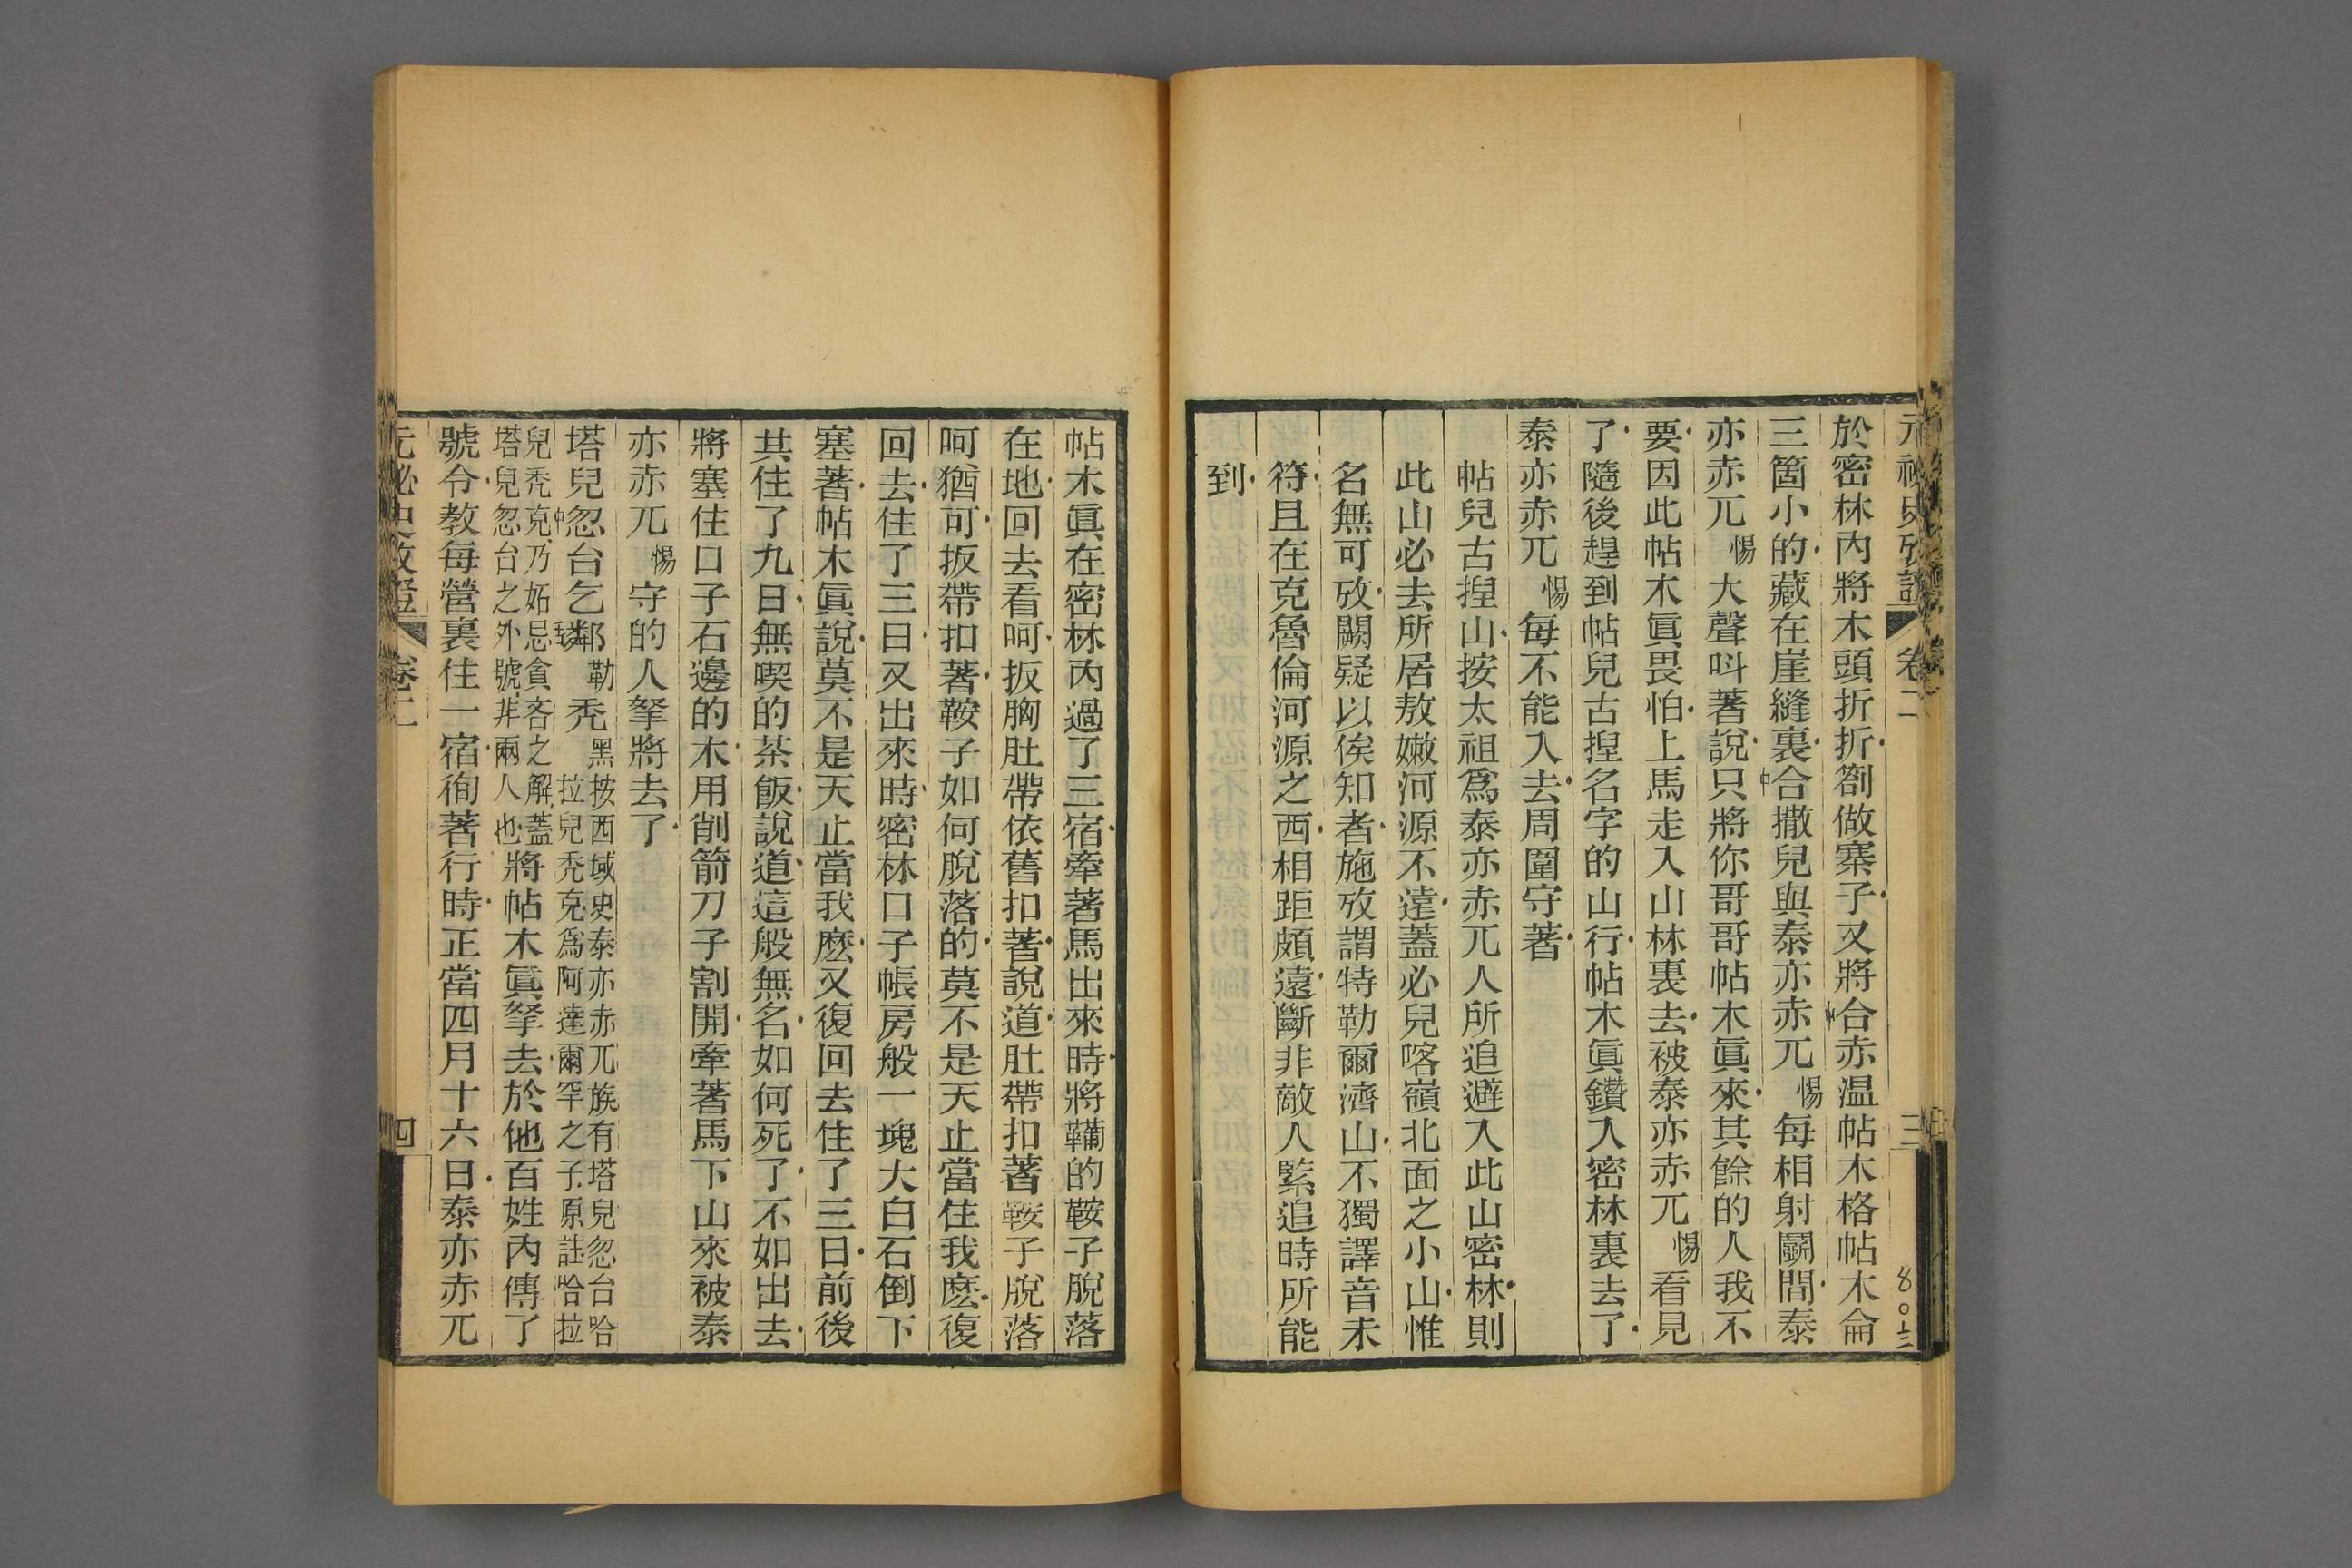 元祕史攷證 卷二 三
於密林內將木頭折折劄做寨子又將中合赤温帖木格帖木侖
三箇小的藏在崖縫裏中合撒兒與泰亦赤兀惕每相射鬬間泰
亦赤兀惕大聲呌著說只將你哥哥帖木眞來其餘的人我不
要因此帖木眞畏怕上馬走入山林裏去被泰亦赤兀惕看見
了隨後趕到帖兒古捏名字的山行帖木眞鑽入密林裏去了
泰亦赤兀惕每不能入去周圍守著
帖兒古捏山按太祖爲泰亦赤兀人所追避入此山密林則
此山必去所居敖嫩河源不遠蓋必兒喀嶺北面之小山惟
名無可攷闕疑以俟知者施攷謂特勒爾濟山不獨譯音未
符且在克魯倫河源之西相距頗遠斷非敵人緊追時所能
到
帖木眞在密林內過了三宿牽著馬出來時將鞴的鞍子脫落
在地回去看呵扳胸肚帶依舊扣著說道肚帶扣著鞍子脫落
呵猶可扳帶扣著鞍子如何脫落的莫不是天止當住我麽復
回去住了三日又出來時密林口子帳房般一塊大白石倒下
塞著帖木眞說莫不是天止當我麽又復回去住了三日前後
共住了九日無喫的茶飯說道這般無名如何死了不如出去
將塞住口子石邊的木用削箭刀子割開牽著馬下山來被泰
亦赤兀惕守的人拏將去了
塔兒中忽台乞鄰勒禿黑按西域史泰亦赤兀族有塔兒忽台哈
拉兒禿克爲阿達爾罕之子原註哈拉
兒禿克乃妬忌貪吝之解蓋
塔兒忽台之外號非兩人也將帖木眞拏去於他百姓內傳了
號令教每營裏住一宿徇著行時正當四月十六日泰亦赤兀
元祕史攷證 卷二 四